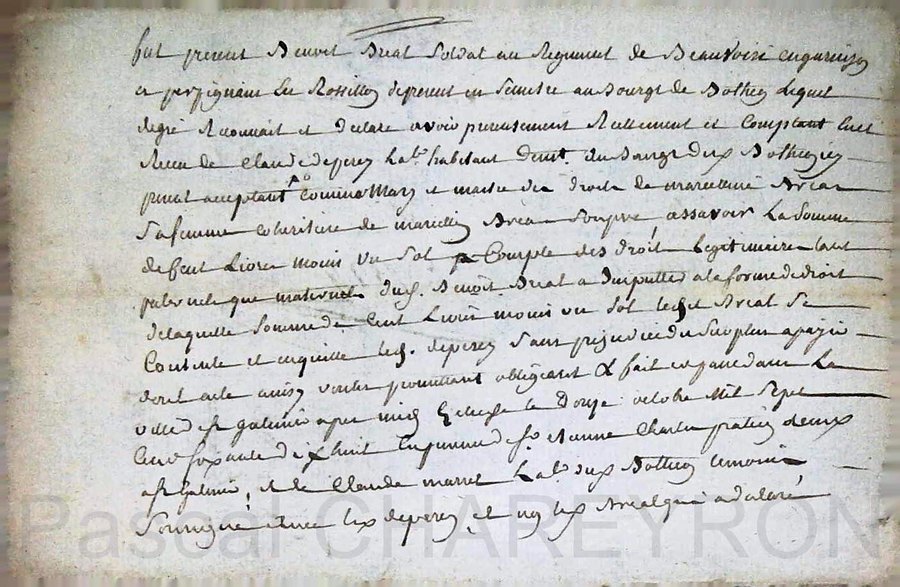 fut présent Benoit Breat Soldat au Regiment de Beauvoisi engarnizon
a perpignant En Rossillon de present en Semestre au Bourgt de Botheon Lequel
degré Reconnait et declare avoir presentement Reellement et Comptant huet
Receu de Claude deperey Lab.r habitant du Bourgt dudx Botheon
present acceptant Comme Mary et maitre des droits de marcelline Breat
Safemme coheritiere de marcellin Breat Son pere assavoir La Somme
de Cent Livres moins un Sol Compte des droit Legitimaire tant
paternele que maternele dud. Benoit Breat a Imputter a la forme de droit
de laquelle Somme de Cent Livres moins un Sol ledit Breat Se
Contente et enquitte led. deperey Sans prejudice du Surplus a payer
dont acte ainsy voulu promettant obligeant & fait et passé dans La
ville de st galmier apres midy Le Douze octobre Mil Sept
Cent Soixante dix huit En presence de Sr Etienne Charles praticien
a st Galmier, et de Claude marret Lab.r dudx Botheon temoins
Soussigné avec Ledx deperey, et non Ledx Breat qui a declaré
Pascal CHAREYRON